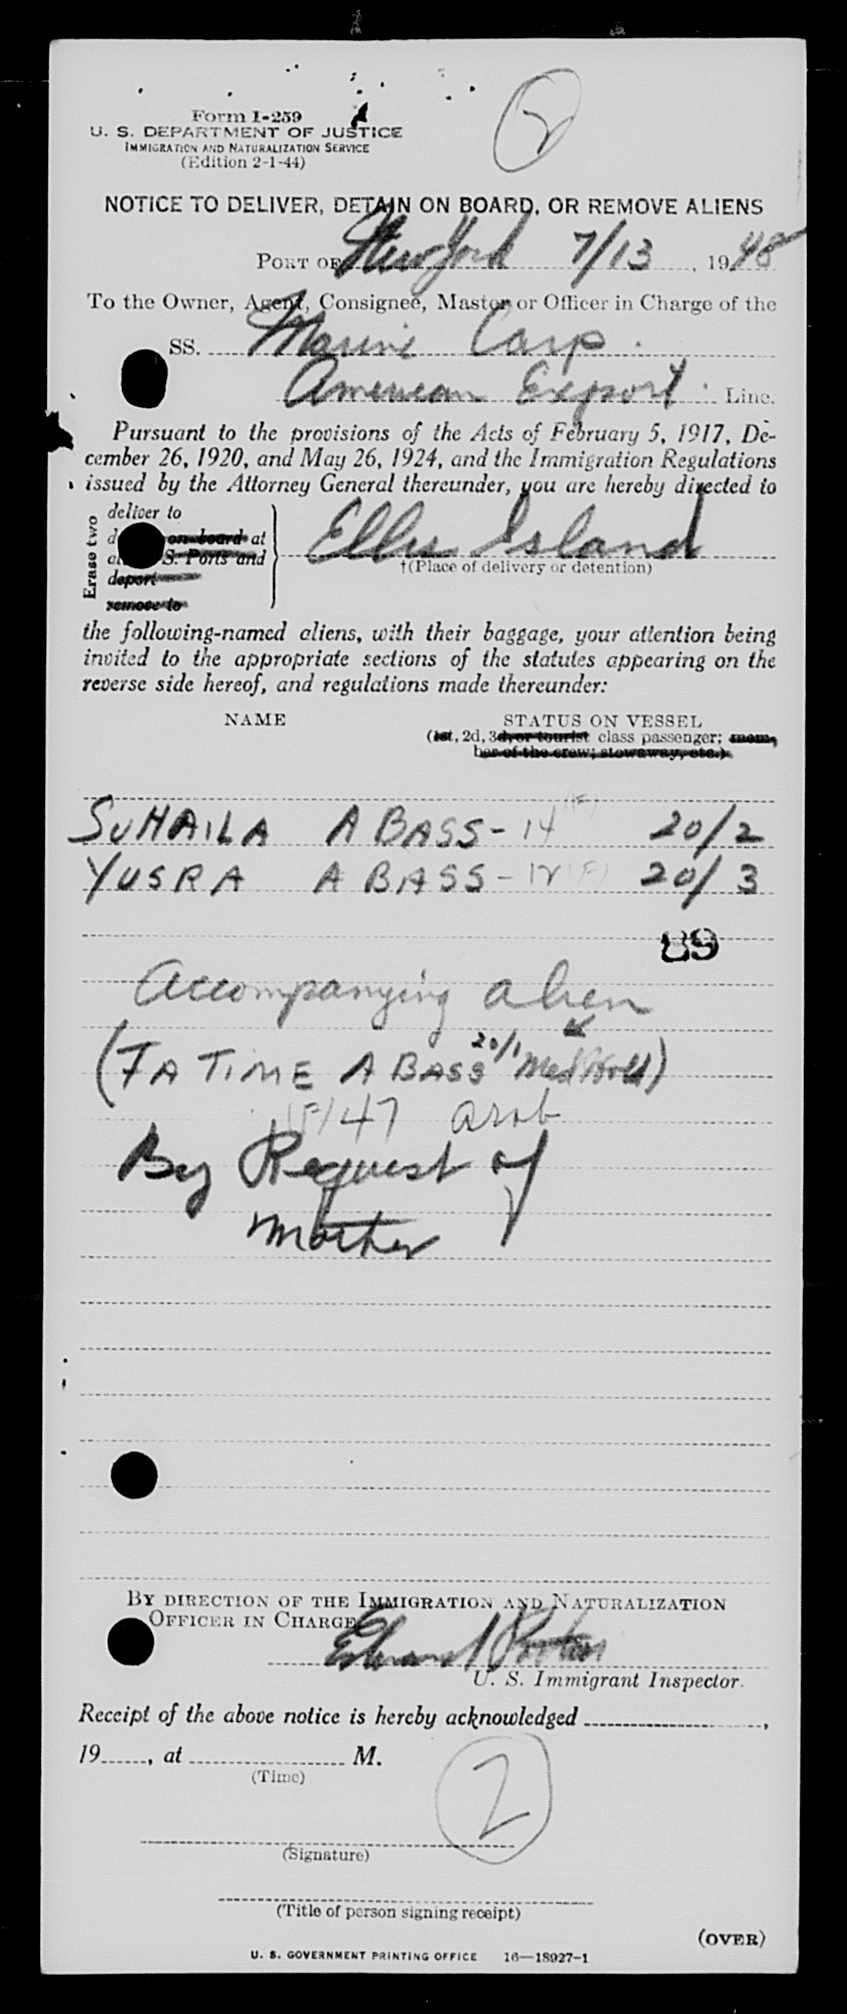 2
Form I-259
U. S. DEPARTMENT OF JUSTICE
IMMIGRATION AND NATURALIZATION SERVICE
(Edition 2-1-44)
NOTICE TO DELIVER, DETAIN ON BOARD, OR REMOVE ALIENS
PORT OF New York 7/13, 1948
To the Owner, Agent, Consignee, Master or Officer in Charge of the
SS. Marine Carp.
American Export. Line.
Pursuant to the provisions of the Acts of February 5, 1917, De-
cember 26, 1920, and May 26, 1924, and the Immigration Regulations
issued by the Attorney General thereunder, you are hereby directed to
Erase two
deliver to
on board at
S. Ports and
deport
remove to
Ellis Island
†(Place of delivery or detention)
the following-named aliens, with their baggage, your attention being
invited to the appropriate sections of the statutes appearing on the
reverse side hereof, and regulations made thereunder:
NAME STATUS ON VESSEL
(1st, 2d, 3d, or tourist class passenger; mem-
ber of the crew; stowaway, etc.)
SUHAILA ABASS - 14 (F) 20/2
YUSRA ABASS - 12 (F) 20/3
89
Accompanying alien
(FATIME ABASS 20/1 Med Hold)
(F) 47 arab
By Request of
Mother
BY DIRECTION OF THE IMMIGRATION AND NATURALIZATION
OFFICER IN CHARGE
Edward
U. S. Immigrant Inspector.
Receipt of the above notice is hereby acknowledged ,
19 , at M.
(Time)
2
(Signature)
(Title of person signing receipt)
(OVER)
U. S. GOVERNMENT PRINTING OFFICE 16—18927-1